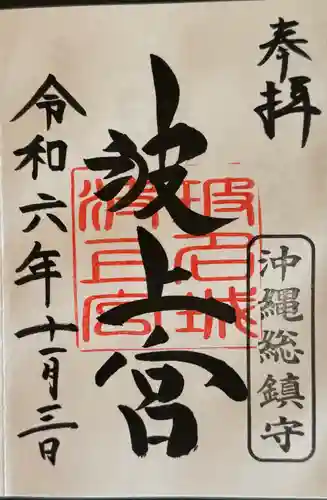 奉拝
沖縄総鎮守
波上宮
波上宮
令和六年十一月三日